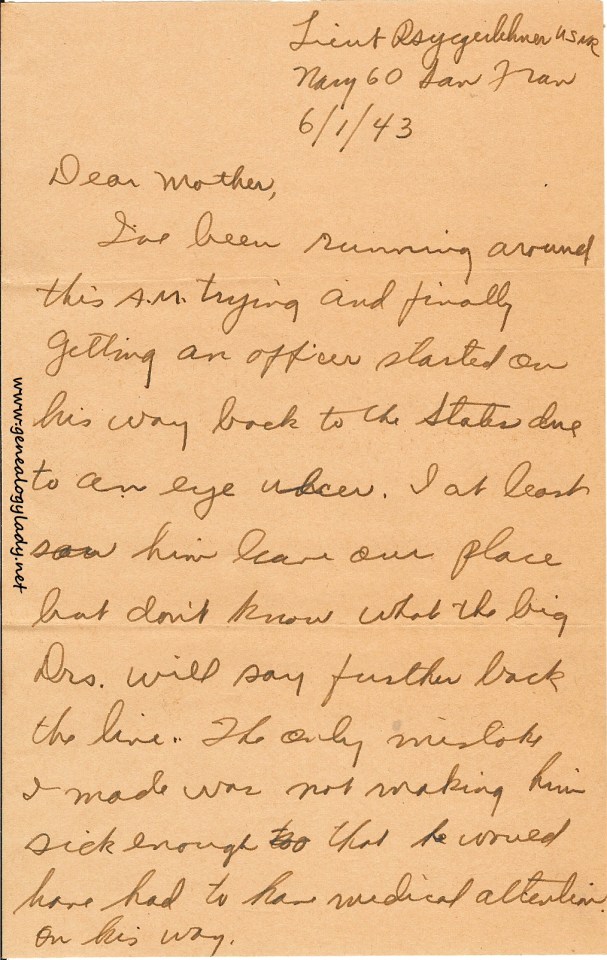 Lieut USNR
Navy 60 San Fran
6/1/43
Dear Mother,
I've been running around
this A.M. trying and finally
getting an officer started on
his way back to the States due
to an eye ulcer. I at least
saw him leave our place
but don't know what the big
Drs. will say further back
the line.. The only mistake
I made was not making him
sick enough too that he would
have had to have medical attention
on his way.
www.genealogylady.net